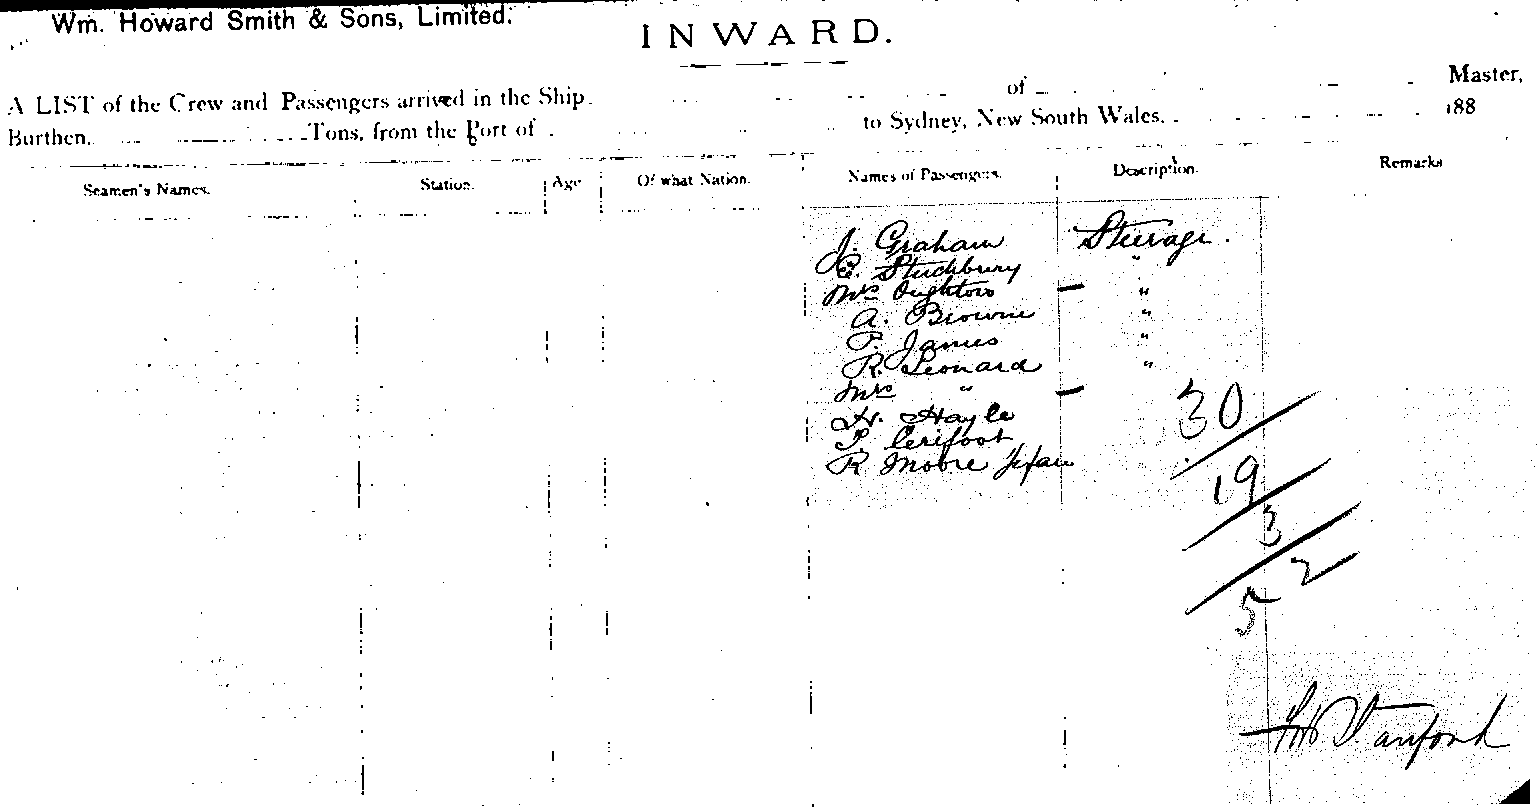 Wm. Howard Smith & Sons, Limited.
INWARD.
A LIST of the Crew and Passengers arrived in the Ship of Master,
Burthen, Tons, from the Port of to Sydney, New South Wales, 188
Seamen's Names. Station. Age Of what Nation. Names of Passengers. Description. Remarks
J. Graham Steerage.
E. Stuchbury "
Mrs Oughton — "
A. Browne "
P. James "
R. Leonard "
Mrs " —
H. Hayle
R Moore
30
19
3
2
5
Stanford